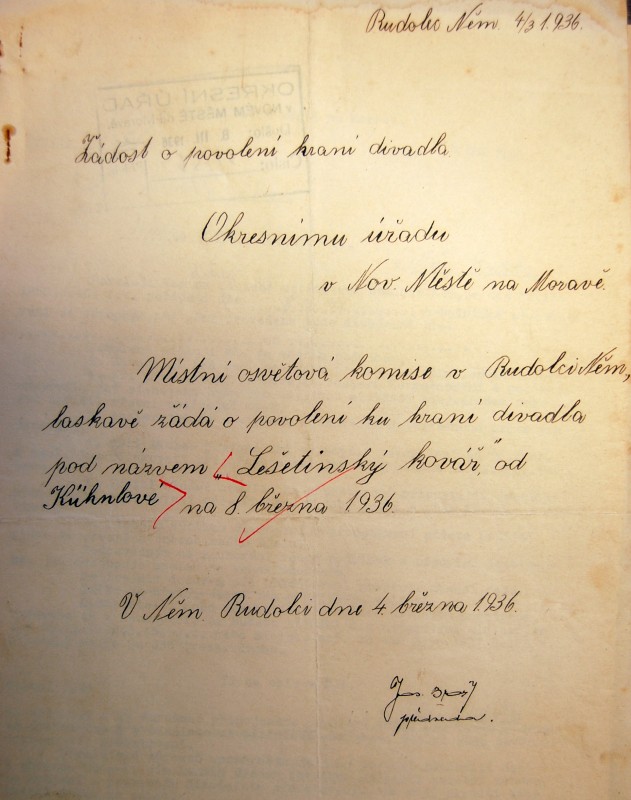 Rudolec Něm. 4/3 1936.
OKRESNÍ ÚŘAD
v NOVÉM MĚSTĚ na Moravě
8. III. 1936
Žádost o povolení hraní divadla.
Okresnímu úřadu
v Nov. Městě na Moravě.
Místní osvětová komise v Rudolci Něm.,
laskavě žádá o povolení ku hraní divadla
pod názvem „Lešetinský kovář," od
Kühnlové na 8. března 1936.
V Něm. Rudolci dne 4. března 1936.
předseda.